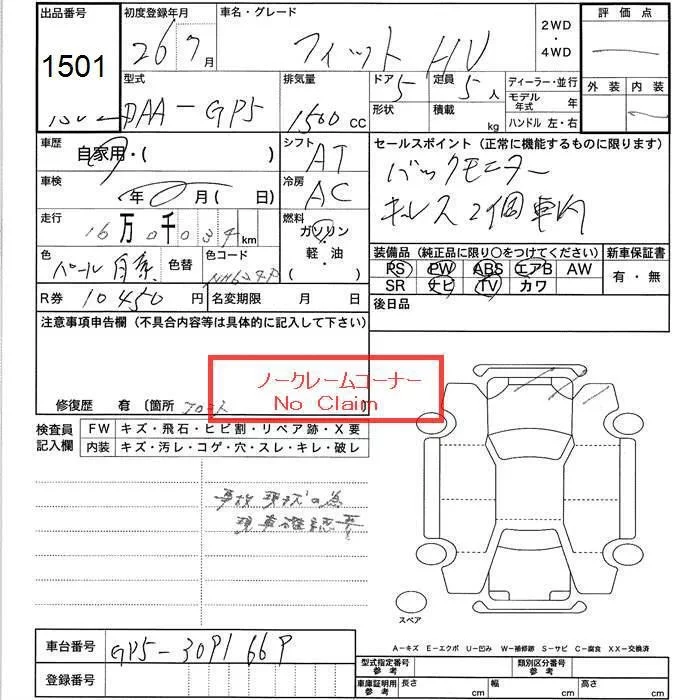 出品番号 初度登録年月 車名・グレード 2WD ・ 4WD 評価点
1501 26 7月 フィット HV
外装 内装
型式 排気量 ドア 定員 ディーラー・並行
DAA-GP5 1500cc 5 5人 モデル年式 年
形状 積載 kg ハンドル 左・右
車歴 自家用・( ) シフト AT セールスポイント (正常に機能するものに限ります)
バックモニター
車検 年 月 ( 日) 冷房 AC キーレス2個車内
走行 16万0千034km 燃料 ガソリン・軽・油・( )
装備品 (純正品に限り○をつけてください) 新車保証書
色 パール白系 色替 色コード PS PW ABS エアB AW 有・無
SR ナビ TV カワ
R券 10450円 名変期限 月 日 後日品
注意事項申告欄 (不具合内容等は具体的に記入して下さい)
ノークレームコーナー
No Claim
修復歴 有 〔箇所 フロント 〕
検査員記入欄 FW キズ・飛石・ヒビ割・リペア跡・X要
内装 キズ・汚レ・コゲ・穴・スレ・キレ・破レ
事故現状の為
現車確認要
スペア
A-キズ E-エクボ U-凹み W-補修跡 S-サビ C-腐食 XX-交換済
車台番号 GP5-3091669
登録番号
型式指定番号 参考 類別区分番号 参考
車庫証明用 参考 長さ cm 幅 cm 高さ cm